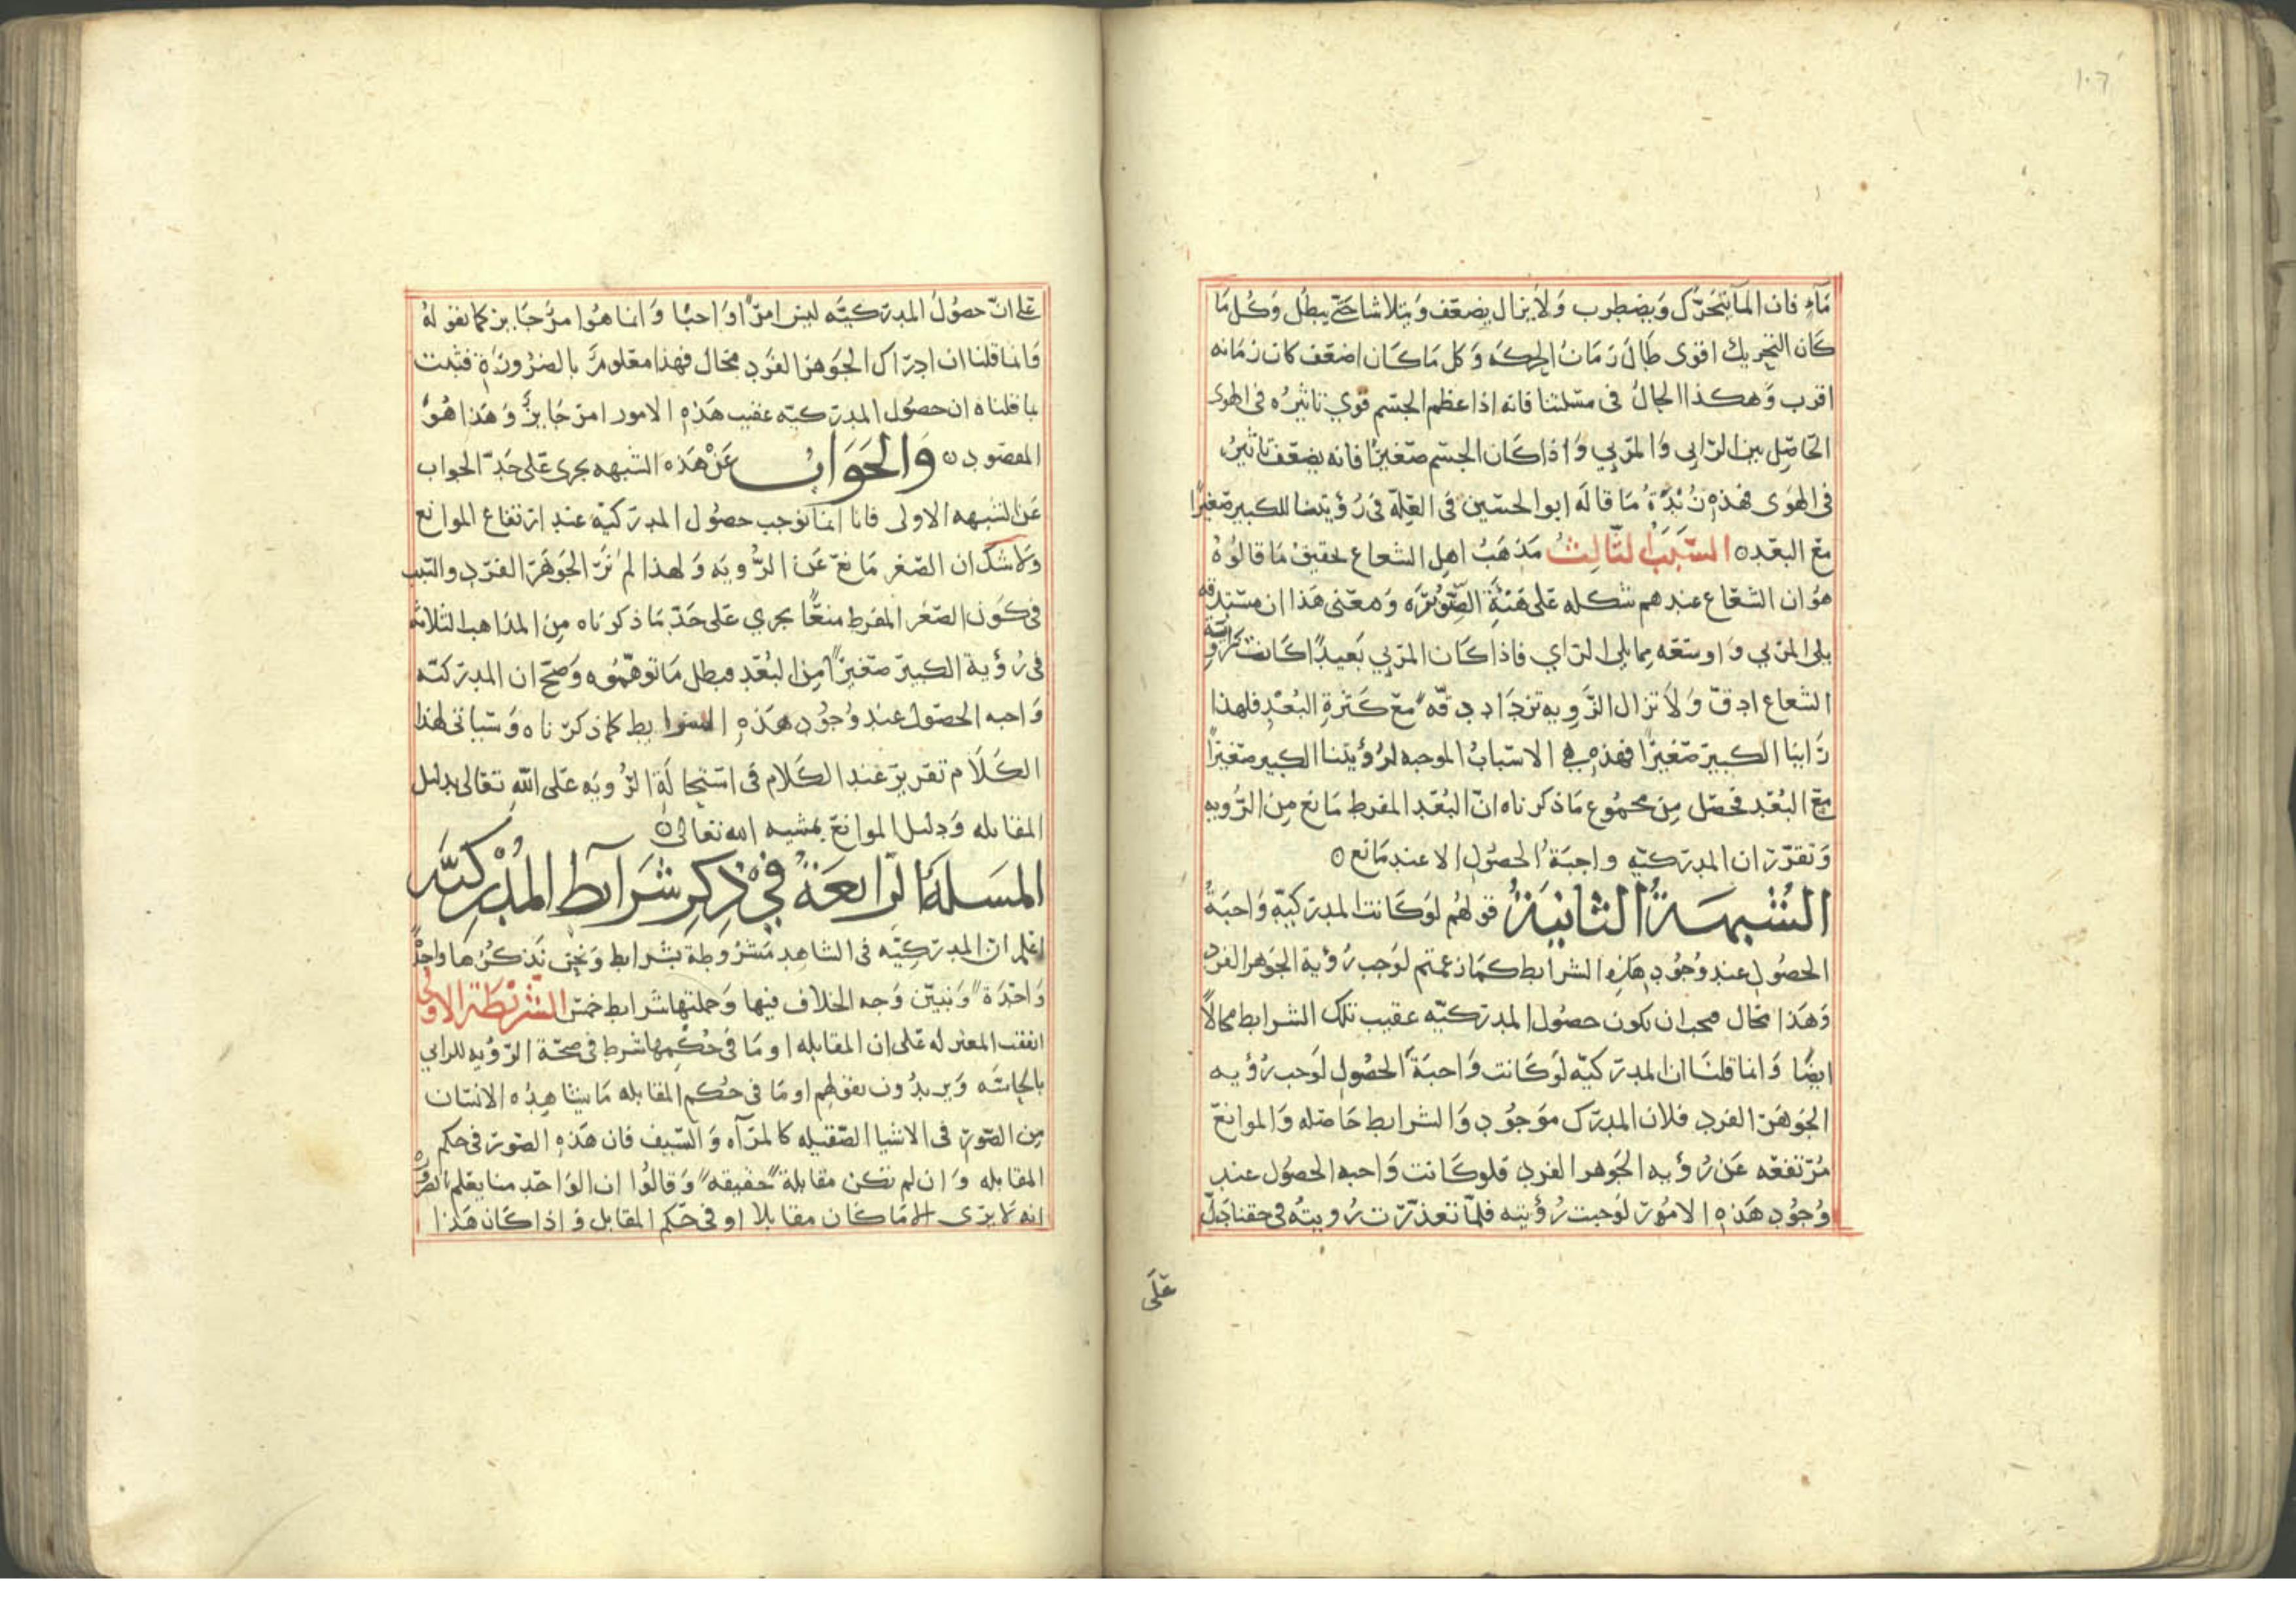 ١٠٦
مَآءٍ فان المآ يتحَرّك وَيضطرب وَلا يزال يضعف وَيتلاشا حَتّى يبطل وَكل مَا
كَان التحريك اقوى طَالَ زمَانُ الحركَه وَكل مَا كَان اضعَف كان زمَانه
اقرب وَهكذا الحَالُ في مسَلتنا فانه اذا عظم الجسَم قوي تاثيرُه في الهوى
الحَاصِل بين الرَّايى وَالمرئي وَاذا كَان الجسَم صَغيرًا فانه يضعَف تاثيرُه
في الهوَى فهَذِه نُبْذَةُ مَا قالَه ابو الحسَين في العِلّه في رُؤيتنا للكبير صَغيرًا
مَع البعد ه السَّبَبُ الثَّالِثُ مَذهَبُ اهل الشعاع تحقيقُ مَا قالُوهُ
هوَ ان الشعَاع عندهم شكله عَلى هَيئَةِ الصَّنَوْبَرَه وَمعنى هَذا ان مستدقه
يلي المرئي وَاوسَعَه مما يلى الراي فاذا كَان المرئي بَعيدًا كَانت زاوية
الشعاع ادقّ وَلا تزال الزَّويه تزدَاد دقّهً مَع كَثرَةِ البُعْدِ فلهذا
رَاينا الكبيرَ صَغيرًا فهذِه هي الاسبَابُ الموجبه لرُؤيتنا الكبير صَغيرًا
مَع البُعْدِ فحصَل مِن مجمُوع مَا ذكرناه انّ البُعْدَ المفرط مَانع مِن الرُّويه
وَتقرّر ان المدركيّه واجبَةُ الحصُولِ الا عند مَانع ه
الشُبهَةُ الثانِيَةُ قولهُم لوكَانت المدركيّةِ وَاجبَةُ
الحصُولِ عند وُجُود هَذِهِ الشرَايط كمَا زعمتم لوَجب رُؤية الجَوهر الفرد
وَهَذا محَال فيجب ان يكون حصُول المدركيّه عقيب تلك الشرايط محَالاً
ايضًا وَانما قلنَا ان المدركيّه لَوكَانت وَاجبَةَ الحصُولِ لَوجب رُؤيه
الجَوهَر الفرد فلان المدرَك موَجُود وَالشرايط حَاصله وَالموانع
مُرتفعَه عَن رُؤيه الجَوهر الفرد فلوكَانت وَاجبه الحصُول عند
وُجُودِ هَذِه الامُور لوَجبت رُؤيته فلمّا تعذرَت رُويتهُ في حقنا دَلّ
عَلَى
عَلى انّ حصُولَ المدركيّه ليسَ امرًا وَاجبًا وَانما هُوَ امرٌ جَايز كما نقوله
وَانما قلنا ان ادرَاك الجَوهر الفرد محَال فهذا معلومٌ بالضرُورَةِ فثبت
بما قلناه ان حصُول المدركيّه عقيب هَذِه الامور امرٌ جَايزٌ وَهَذا هُوَ
المقصُود ه وَالجَوَابُ عَنْ هَذه الشبهه يجرى عَلى حَدِّ الجواب
عَن الشبهه الاولى فانا انما نوجب حصُول المدركيّه عند ارتفاع الموانع
وَلا شك ان الصّغر مَانعٌ عَن الرُّويه وَلهذا لم نَرَ الجَوهَر الفرد والسبب
في كَون الصغَر المفرط منعًا يجري عَلى حَدّ مَا ذكرناه مِن المذاهب الثلاثه
في رُؤية الكبير صَغيرًا مِن البُعْدِ فبطل مَا توهّمُوه وَصَحّ ان المدركيّه
وَاجبه الحصُول عند وُجُود هَذِه الشرايط كما ذكرناه وَسَياتى لهذا
الكَلَام تقرير عَند الكَلام في استحَالَةِ الرُّويه عَلى اللّه تعَالى بدليل
المقابله وَدليل الموانع بمشيه الله تعالى ه
المَسَلةُ الرّابعَةُ فِي ذِكرِ شَرَآيط المُدْرَكِيَّه
اعلم ان المدركيّه في الشاهد مَشرُوطة بشرايط وَنحن نَذكرُهَا واحِدةً
وَاحدَةً وَنبيّن وَجه الخلاف فيها وَجملتها شرايط خمسٌ الشّرِيْطَة الاولى
اتفقت المعتزله عَلى ان المقابله او مَا في حُكمِها شرط في صحّة الرّؤيه للرايي
بالحَاسَّه وَيريدُون بقولهم او مَا في حُكم المقابله مَا يشاهِدُه الانسَان
مِن الصّور في الاشيا الصقيله كالمرآه وَالسّيف فان هَذِه الصّور في حكم
المقابله وَان لم تكن مقابلةً حقيقهً وَقالُوا ان الوَاحدَ منا يعلم بالضروره
انه لا يرَى الا مَا كَان مقابلا او في حَكم المقابل وَاذا كَان هَذا